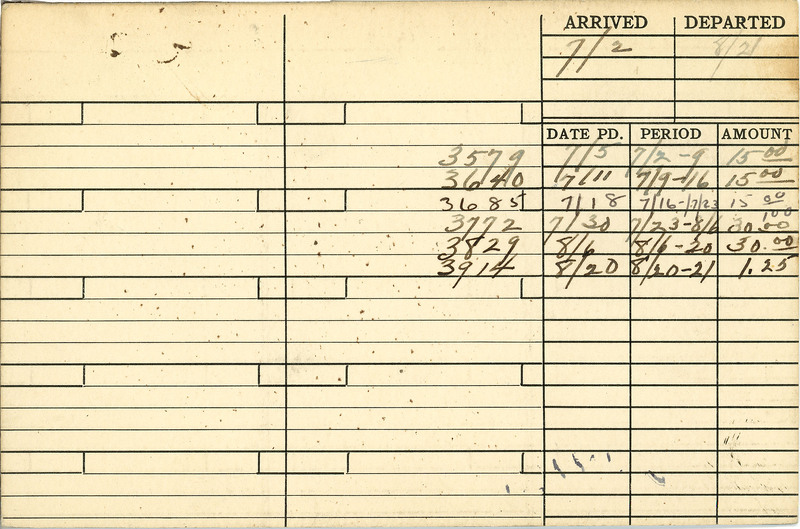 ARRIVED DEPARTED
7/2 8/21
DATE PD. PERIOD AMOUNT
3579 7/5 7/2-9 15 00
3640 7/11 7/9-16 15 00
3685 7/18 7/16-7/23 15 00
1 00
3772 7/30 7/23-8/6 30.00
3829 8/6 8/6-20 30.00
3914 8/20 8/20-21 1.25